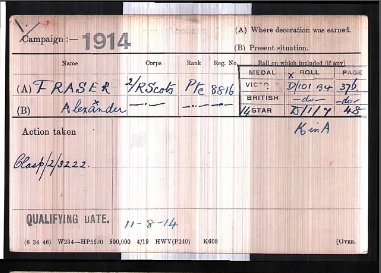 (A) Where decoration was earned.
Campaign:— 1914
(B) Present situation.
Name Corps Rank Reg. No. Roll on which included (if any)
MEDAL ROLL PAGE
(A) FRASER 2/R Scots Pte 8816
VICTORY D/101 B4 376
BRITISH —do— —do—
(B) Alexander —"— —"—
14 STAR D/1/7 48
K in A
Action taken
Clasp/2/3222.
QUALIFYING DATE. 11-8-14
(6 34 46) W234—HP5590 500,000 4/19 HWV(P240) K608 [Over.